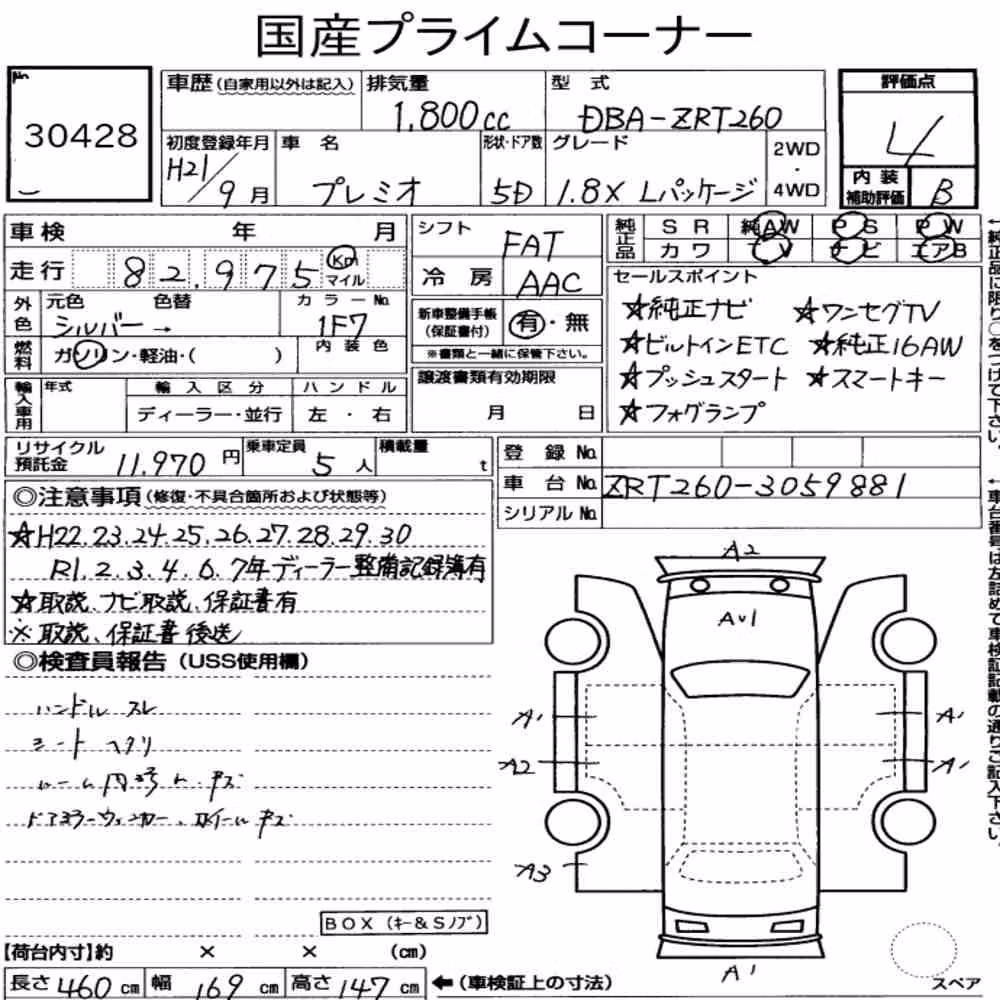 国産プライムコーナー
No.
30428
車歴(自家用以外は記入) 排気量 型式
1,800cc DBA-ZRT260
評価点
4
初度登録年月 車名 形状・ドア数 グレード
H21/9月 プレミオ 5D 1.8X Lパッケージ
2WD・4WD
内装補助評価 B
車検 年 月
走行 82,975 Km マイル
シフト FAT
冷房 AAC
純正品 SR 純AW PS PW
カワ TV ナビ エアB
←純正品に限り○をつけて下さい。
外色 元色 色替 カラーNo.
シルバー→ 1F7
燃料 ガソリン・軽油・( ) 内装色
新車整備手帳(保証書付) 有・無
※書類と一緒に保管下さい。
セールスポイント
☆純正ナビ ☆ワンセグTV
☆ビルトインETC ☆純正16AW
☆プッシュスタート ☆スマートキー
☆フォグランプ
輸入車用 年式 輸入区分 ハンドル
ディーラー・並行 左・右
譲渡書類有効期限
月 日
リサイクル預託金 11,970円 乗車定員 5人 積載量 t
登録No.
車台No. ZRT260-3059881
シリアルNo.
←車台番号は左詰めて車検証記載の通りご記入下さい。
◎注意事項(修復・不具合箇所および状態等)
☆H22.23.24.25.26.27.28.29.30
R1.2.3.4.6.7年ディーラー整備記録簿有
☆取説、ナビ取説、保証書有
※取説、保証書後送
◎検査員報告(USS使用欄)
ハンドルスレ
シートヘタリ
ルーム内 キズ
ドアミラーウィンカー、ホイールキズ
A2
AU1
A1 A1
A2 A1
A3
A1
BOX(キー&Sノブ)
【荷台内寸】約 × × (cm)
長さ460cm 幅169cm 高さ147cm ←(車検証上の寸法)
スペア